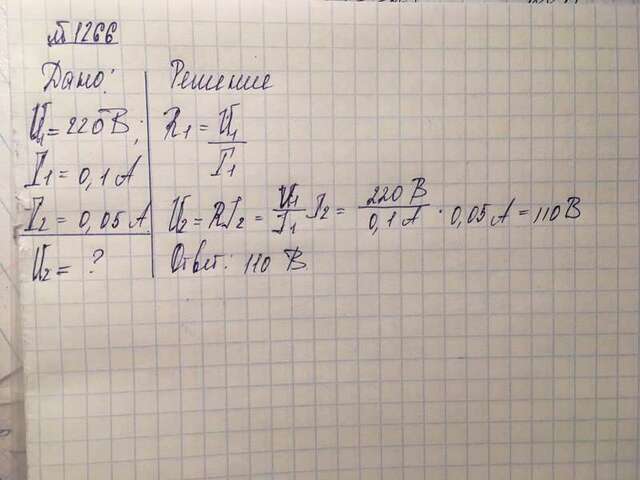 №1266
Дано:
U₁ = 220В;
I₁ = 0,1 А
I₂ = 0,05 А
U₂ = ?
Решение
R₁ = U₁/I₁
U₂ = RI₂ = U₁/I₁ I₂ = 220 В/0,1 А · 0,05 А = 110 В
Ответ: 110 В